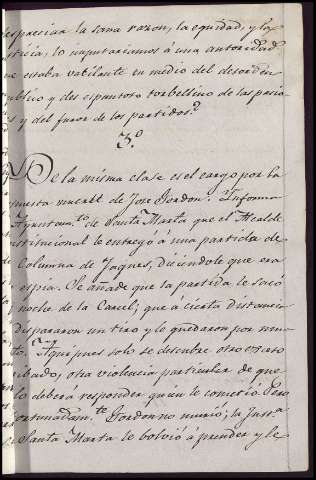 desprecian la sana razon, la equidad, y la
sticia, lo imputariamos á una autoridad
no estaba vacilante en medio del desorden
publico y del espantoso torbellino de las pasio
s y del furor de los partidos?
3.º
De la misma clase es el cargo por la
puesta muerte de Jose Gordon. Informa
Ayuntam.to de Santa Marta que el Alcalde
nstitucional le entregó á una partida de
Columna de Jaques, diciendole que era
espia. Se añade que la partida le sacó
noche de la Carcel; que á cierta distancia
dispararon un tiro y le quedaron por mu
to. Aqui pues solo se descubre otro exceso
ribado, otra violencia particular de que
lo deberá responder quien le cometió. Pero
ortunadam.te Gordon no murió; la Just.a
Santa Marta le bolvió á prender y le